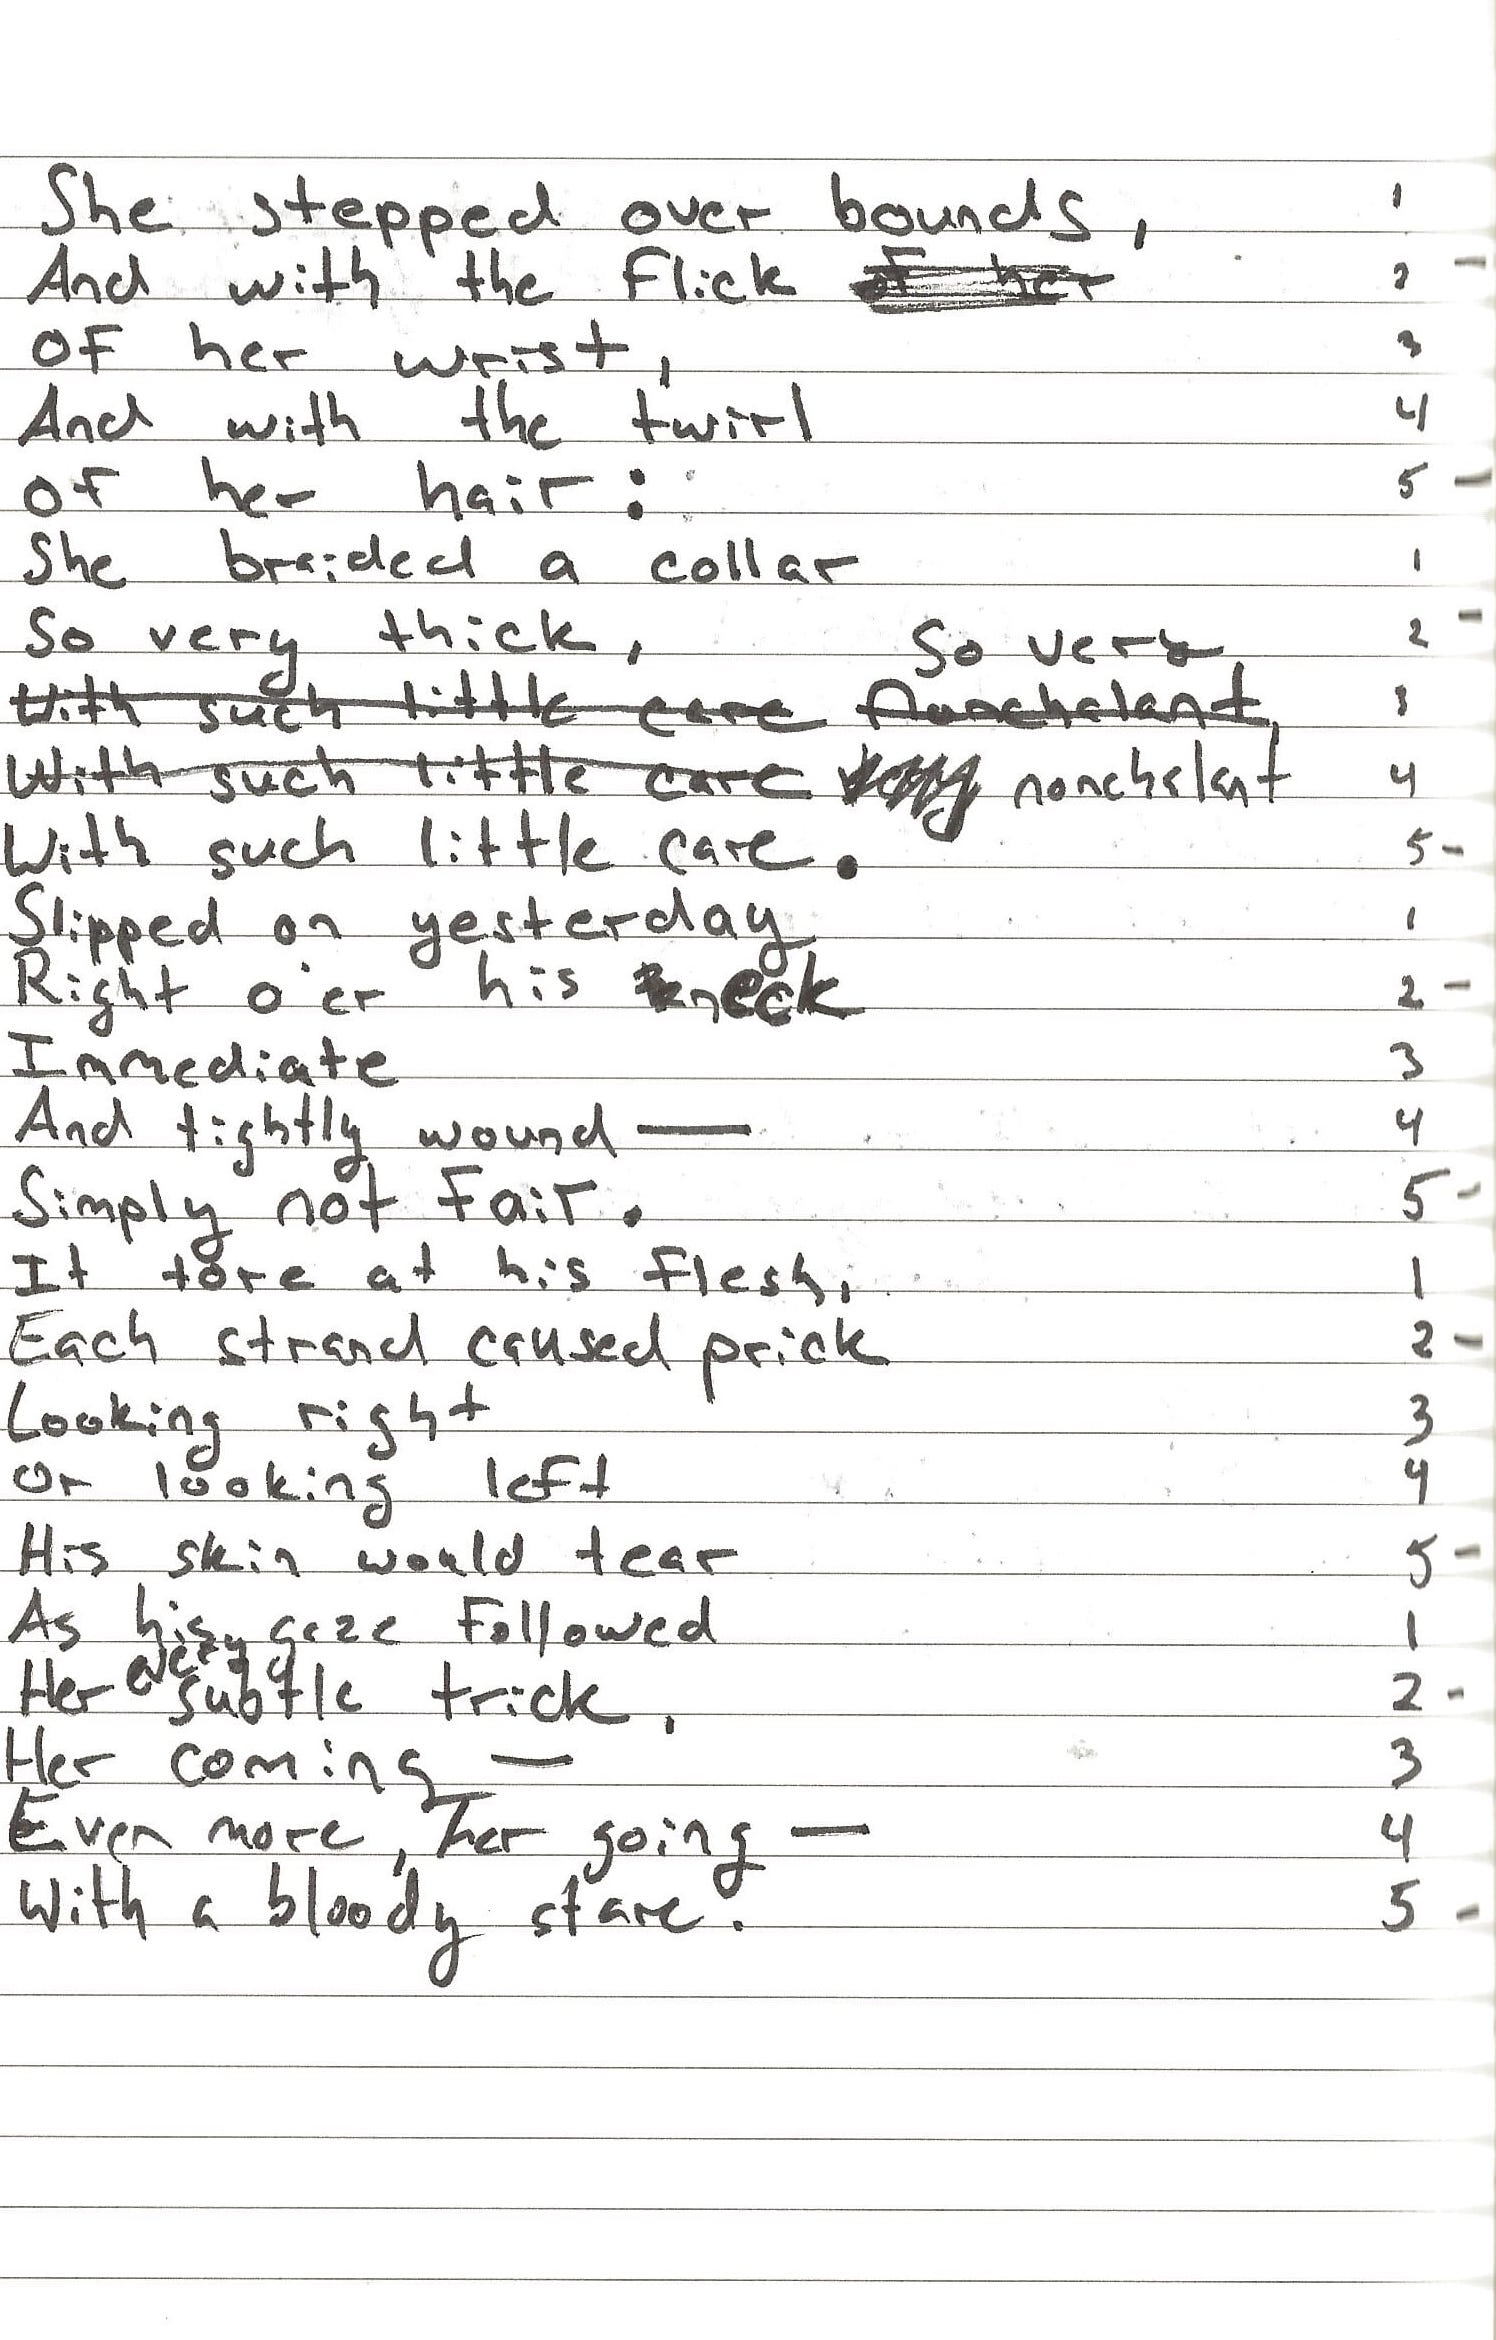 She stepped over bounds, 1
And with the flick of her 2 -
Of her wrist, 3
And with the twirl 4
Of her hair: 5 -
She braided a collar 1
So very thick, So very 2 -
With such little care Nonchelant, 3
With such little care nonchelant 4
With such little care. 5 -
Slipped on yesterday 1
Right o'er his neck 2 -
Immediate 3
And tightly wound — 4
Simply not fair. 5 -
It tore at his flesh, 1
Each strand caused prick 2 -
Looking right 3
Or looking left 4
His skin would tear 5 -
As his gaze followed 1
Her every subtle trick, 2 -
Her coming — 3
Even more, her going — 4
With a bloody stare. 5 -